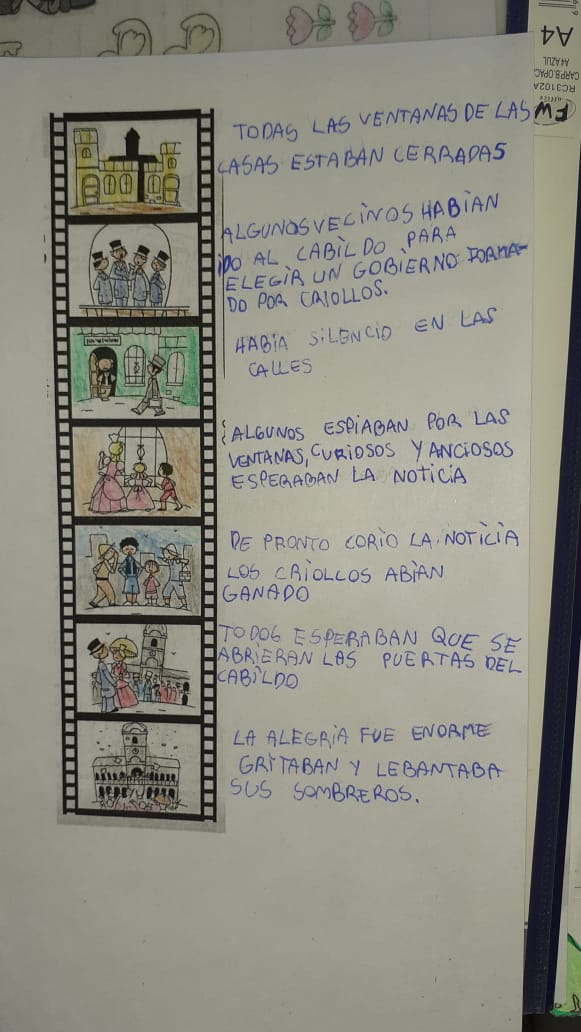 TODAS LAS VENTANAS DE LAS
CASAS ESTABAN CERRADAS
ALGUNOS VECINOS HABIAN
IDO AL CABILDO PARA
ELEGIR UN GOBIERNO FORMA-
DO POR CRIOLLOS.
HABIA SILENCIO EN LAS
CALLES
ALGUNOS ESPIABAN POR LAS
VENTANAS, CURIOSOS Y ANCIOSOS
ESPERABAN LA NOTICIA
DE PRONTO CORIO LA NOTICIA
LOS CRIOLLOS ABIAN
GANADO
TODOS ESPERABAN QUE SE
ABRIERAN LAS PUERTAS DEL
CABILDO
LA ALEGRIA FUE ENORME
GRITABAN Y LEBANTABA
SUS SOMBREROS.
A4
A4 AZUL
CARP.B.OPAC
RC3102A
FW